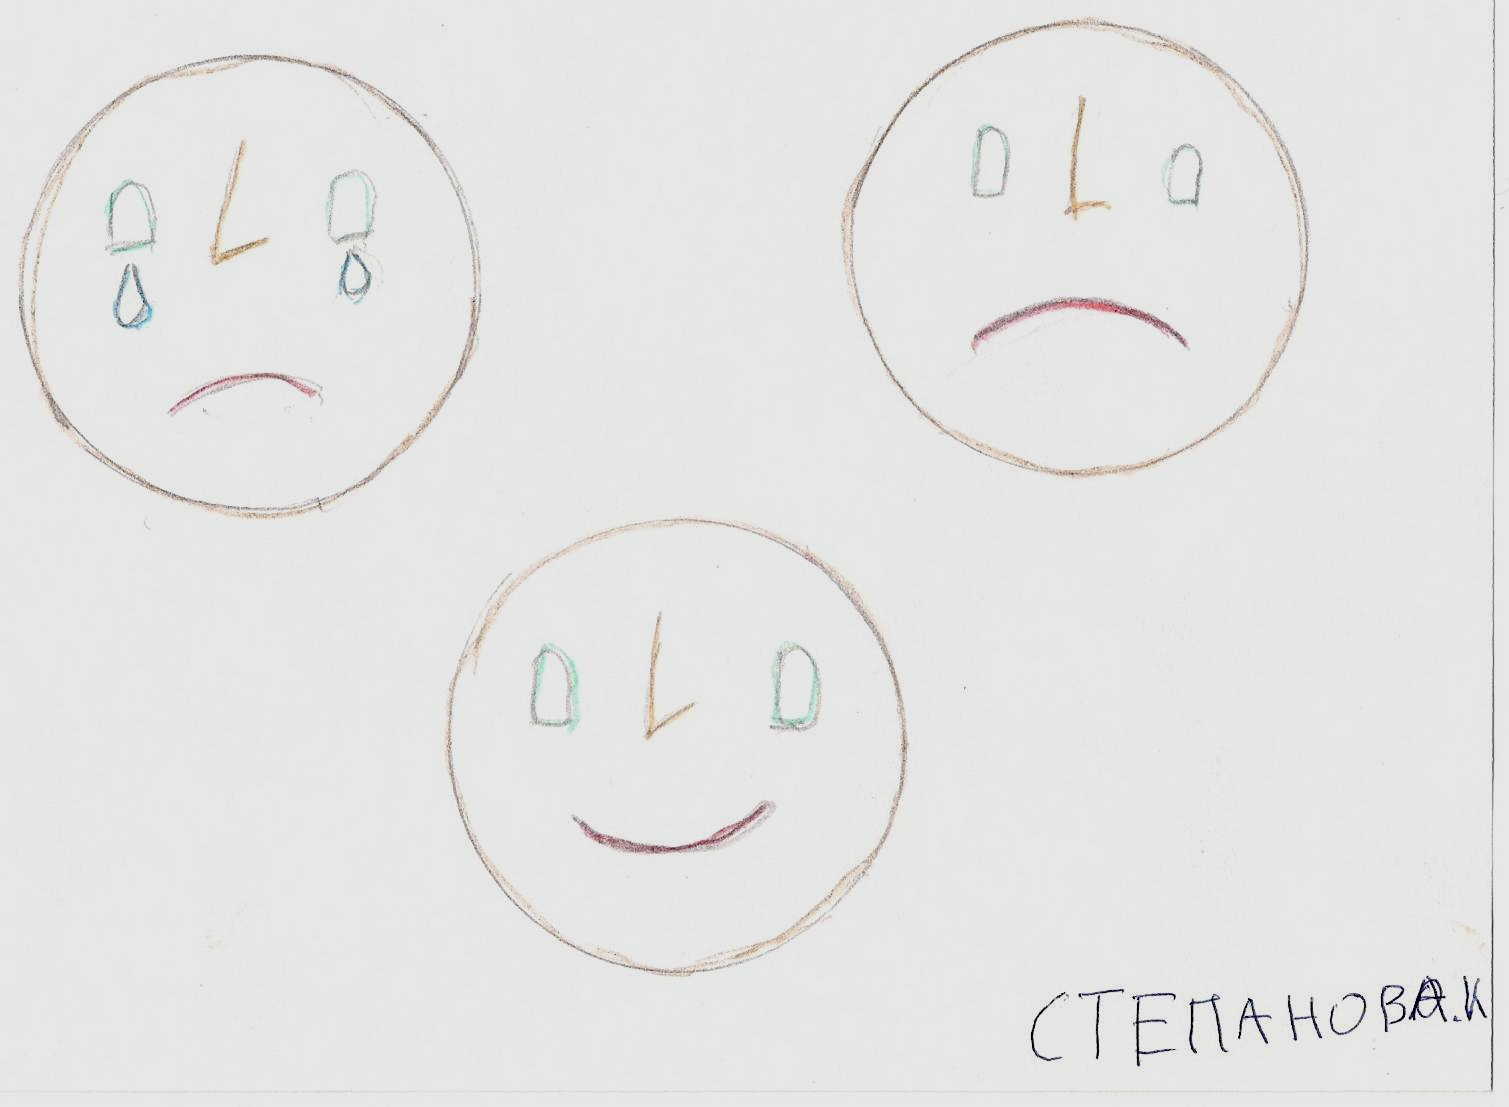 СТЕПАНОВА.К